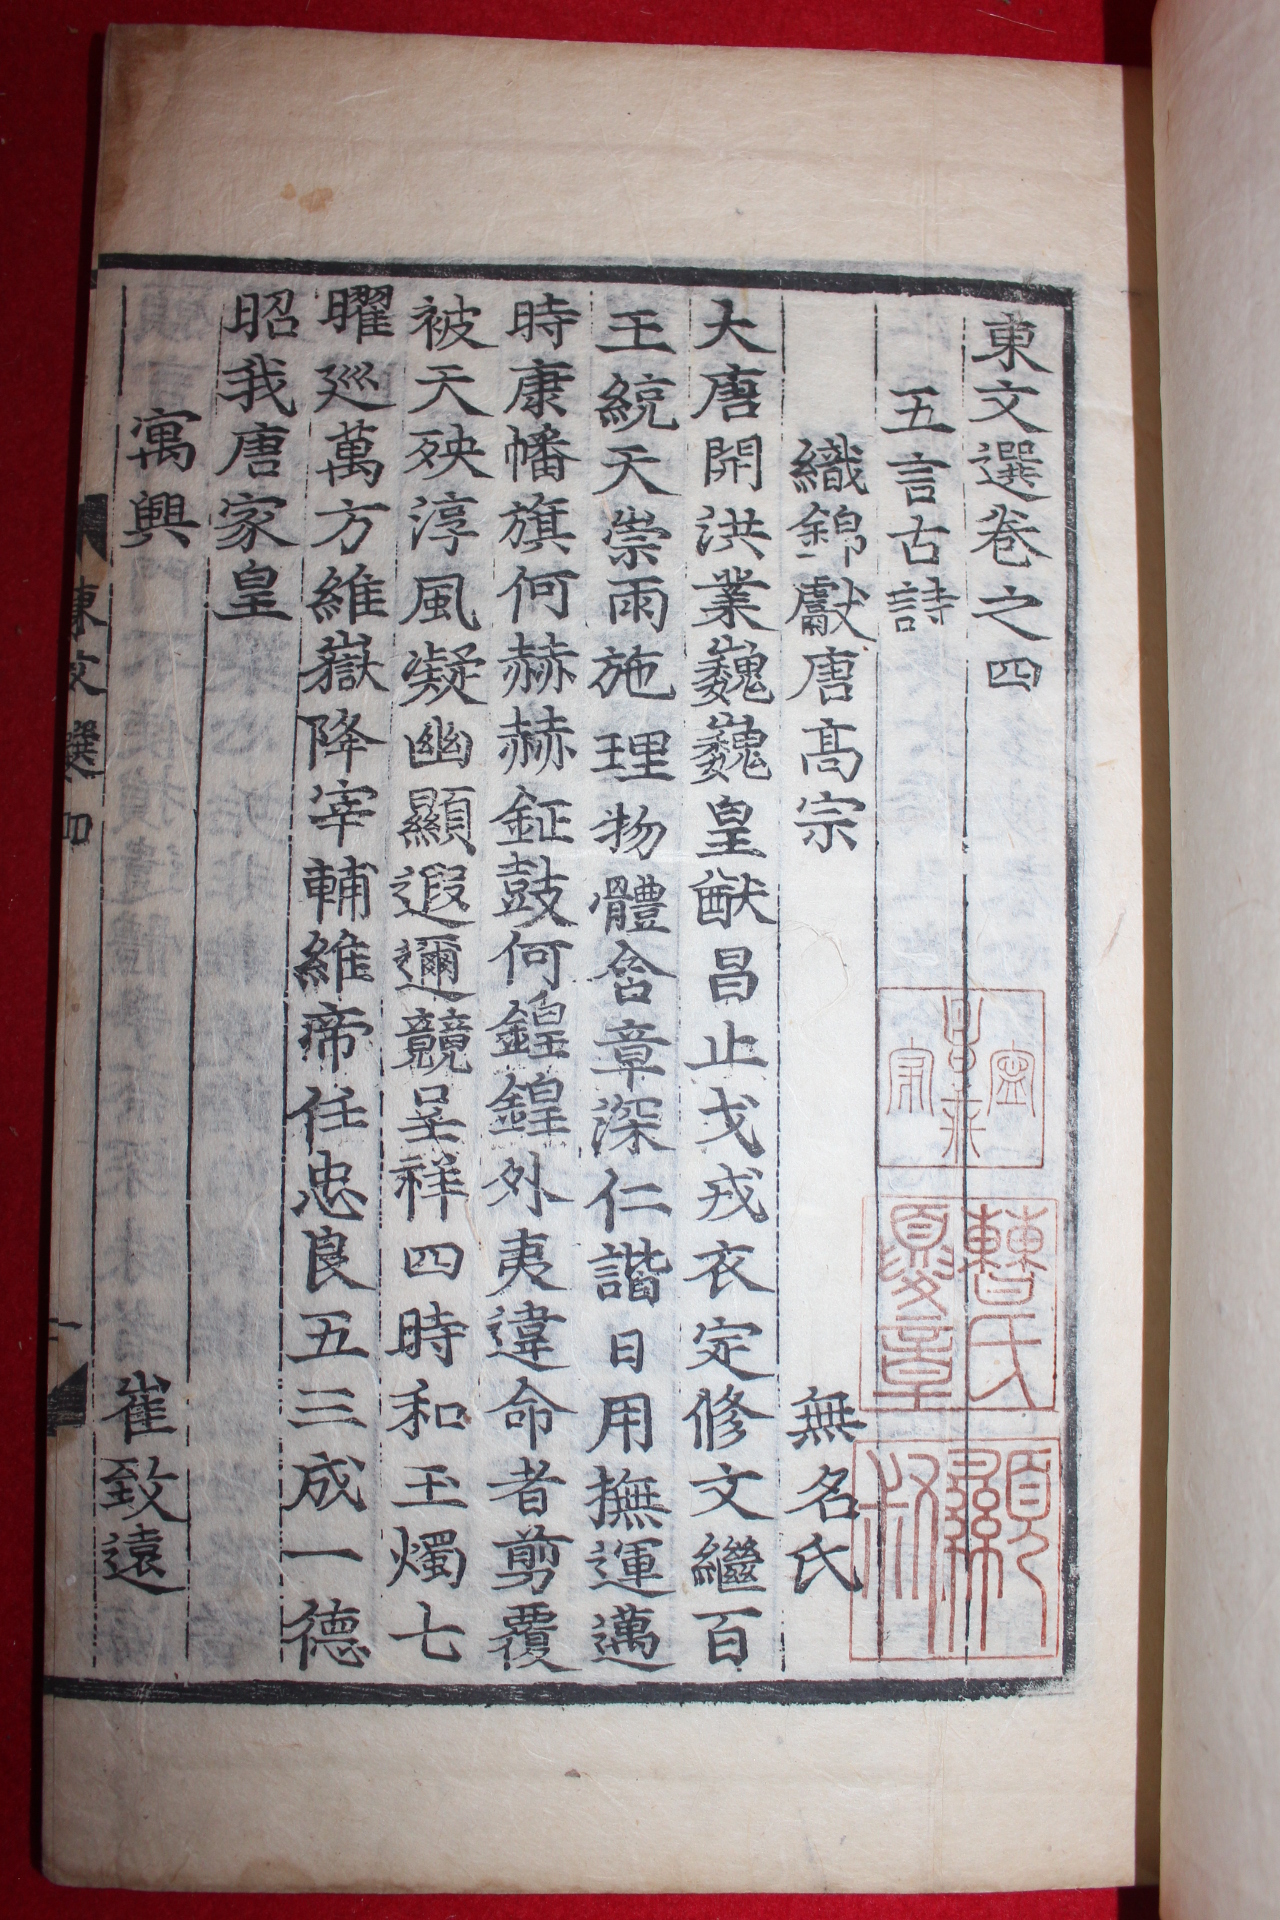 東文選卷之四
五言古詩
織錦獻唐高宗 無名氏
大唐開洪業巍巍皇猷昌止戈戎衣定修文繼百
王統天崇雨施理物體含章深仁諧日用撫運邁
時康幡旗何赫赫鉦鼓何鍠鍠外夷違命者剪覆
被天殃淳風凝幽顯遐邇競呈祥四時和玉燭七
曜巡萬方維嶽降宰輔維帝任忠良五三成一德
昭我唐家皇
寓興 崔致遠
東文選四
一